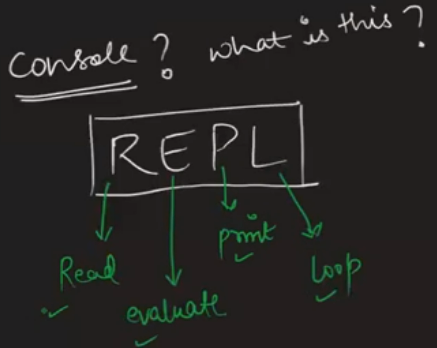 Console? what is this?
REPL
Read evaluate print Loop